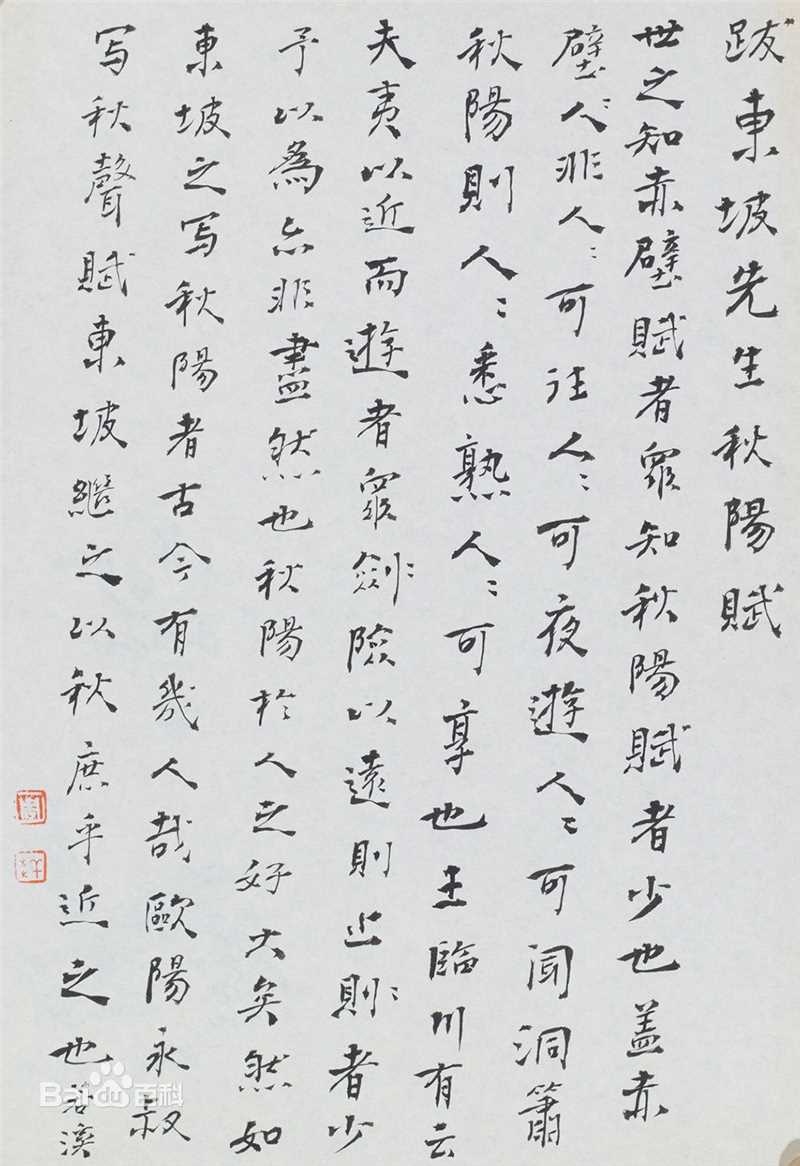 跋東坡先生秋陽賦
世之知赤壁賦者眾知秋陽賦者少也盖赤
壁人〻非人〻可往人〻可夜遊人〻可聞洞簫
秋陽則人〻悉熟人〻可享也王臨川有云
夫夷以近而遊者眾劍險以遠則止則〻者少
予以為亦非盡然也秋陽於人之好大矣然如
東坡之写秋陽者古今有幾人哉歐陽永叔
写秋聲賦東坡繼之以秋庶乎近之也若溪
Bai百科